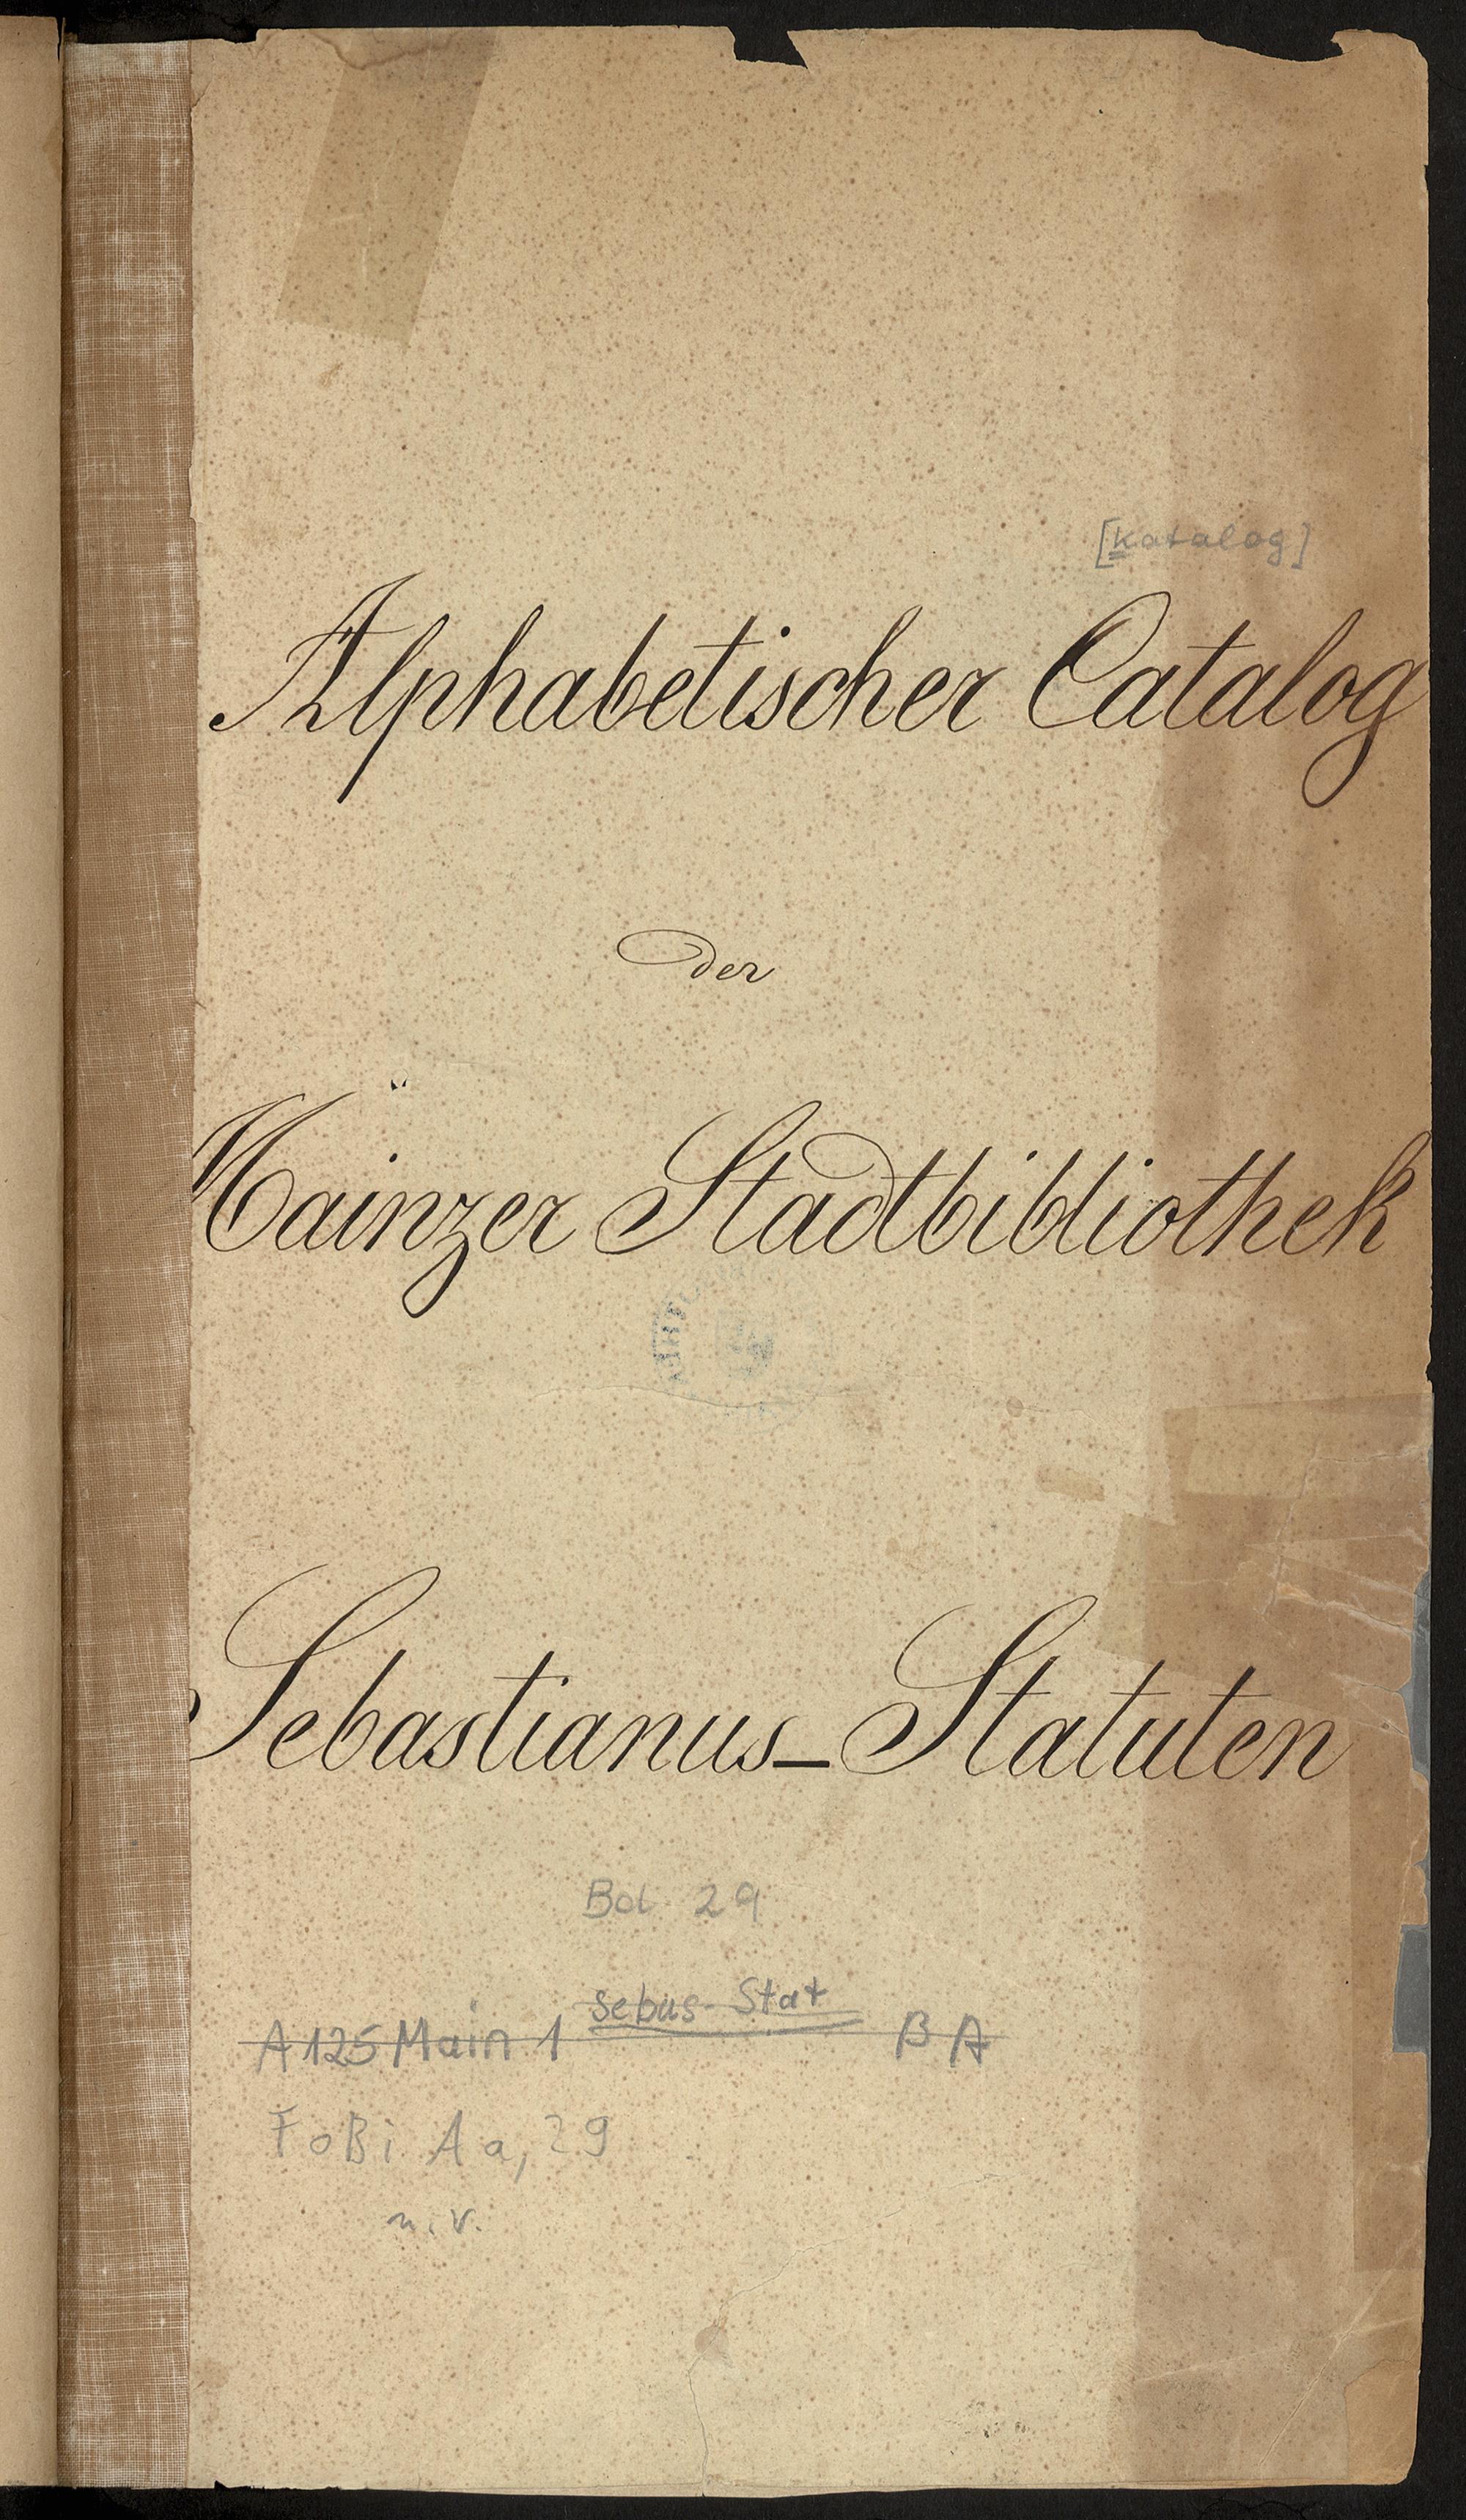 [Katalog]
Alphabetischer Catalog
der
Mainzer Stadtbibliothek
Sebastianus-Statuten
Bd. 29
Sebas-Stat
A 125 Main 1 BA
FoBi Aa, 29
n.v.